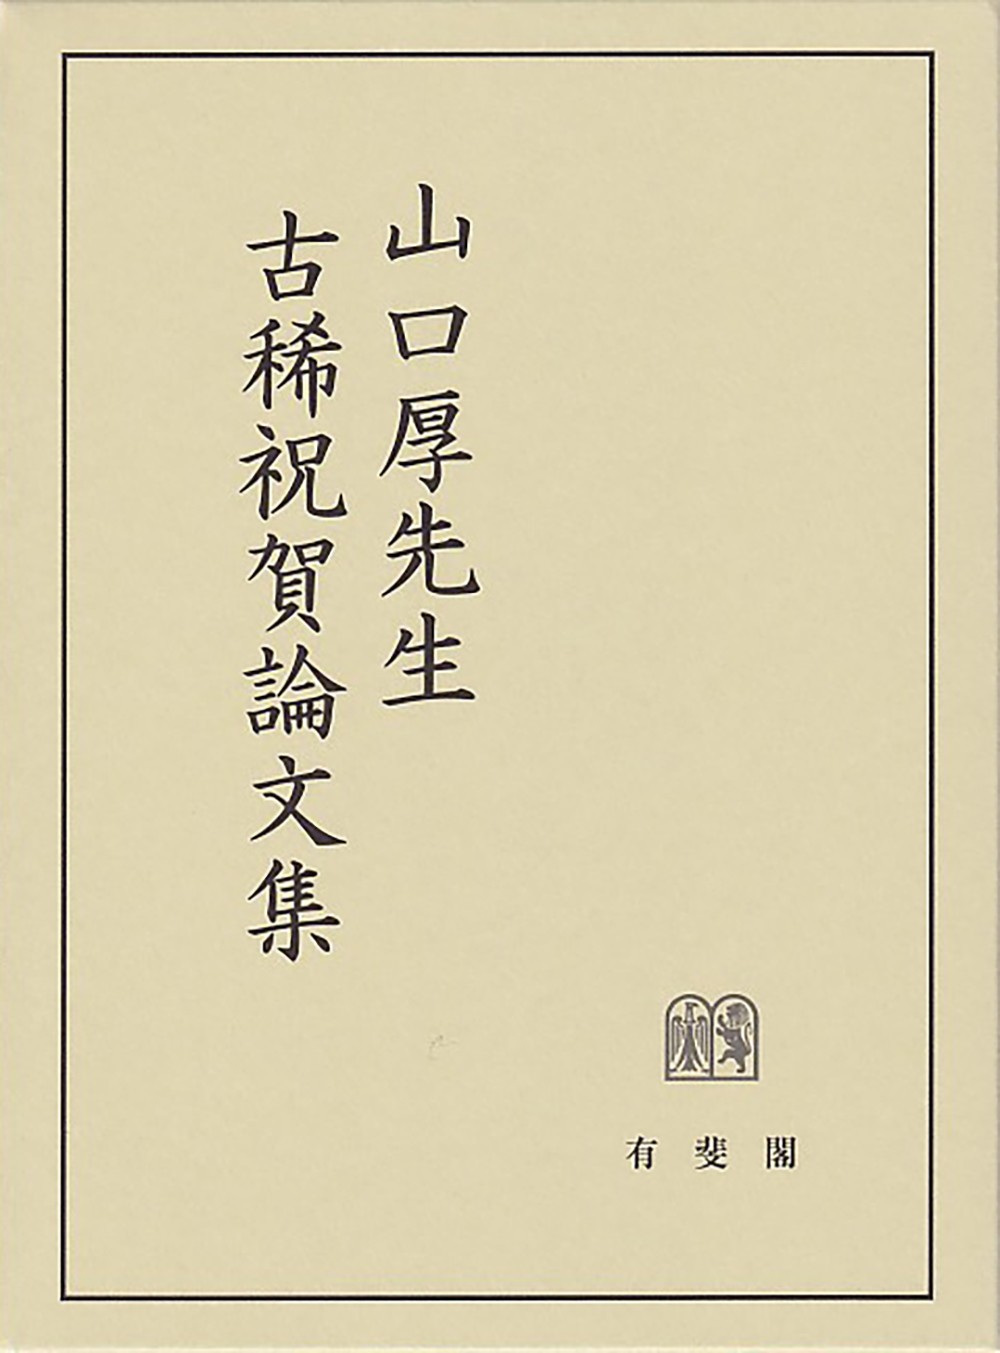 山口厚先生
古稀祝賀論文集
有斐閣